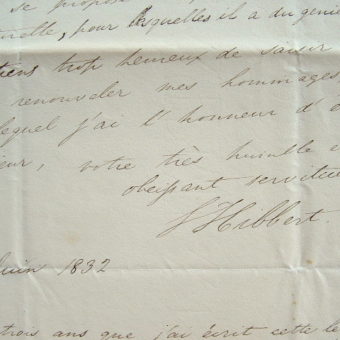 se propose
pour lesquelles il a du genie
trop heureux de saisir
renouveler mes hommages
lequel j'ai l'honneur d'
votre très humble
obeissant serviteur
Hibbert.
Juin 1832
trois ans que j'ai écrit cette le